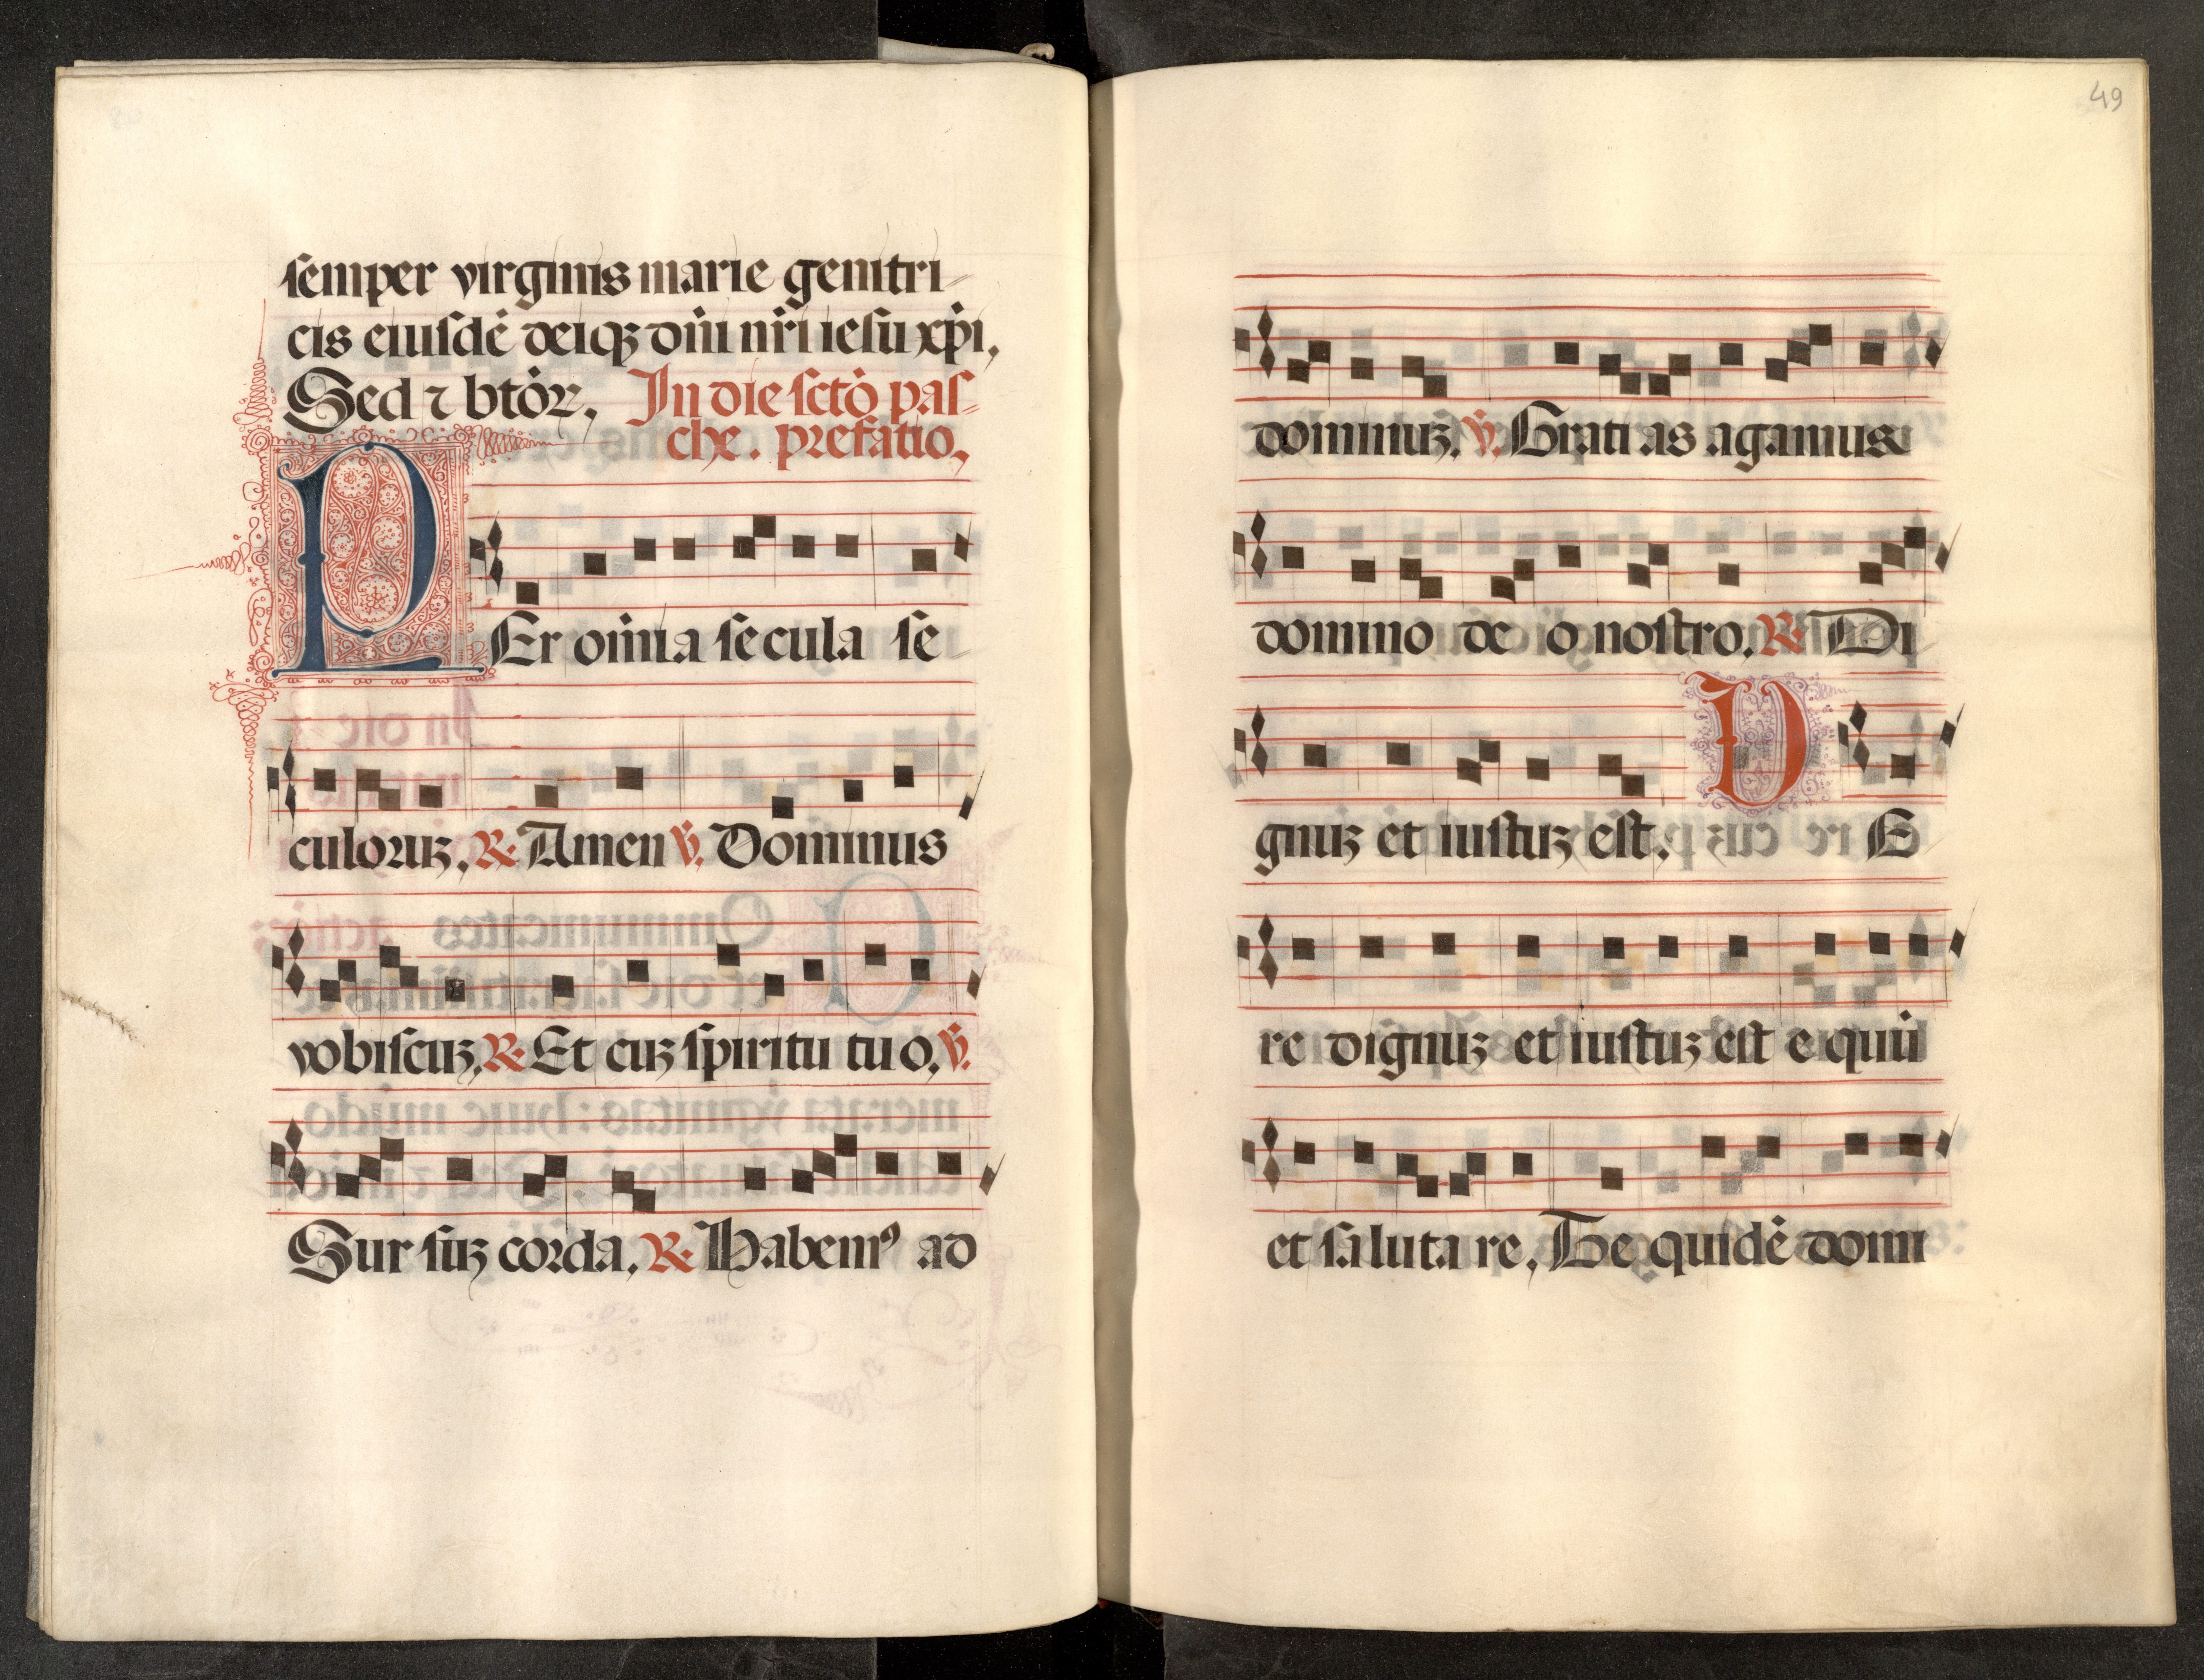 semper virginis marie genitri-
cis eiusdē deiqꝫ dn̄i nr̄i iesu xp̄i,
Sed ⁊ btōꝝ, In die sctō pas-
che. prefatio,
PEr om̄ia secula se
culoruꝫ, ℟ Amen ℣. Dominus
vobiscuꝫ, ℟ Et cuꝫ spiritu tuo, ℣.
Sur suꝫ corda, ℟ Habemꝰ ad
49
dominuꝫ, ℣. Grati as agamus
domino de o nostro, ℟ Di
gnuꝫ et iustuꝫ est, VE
re dignuꝫ et iustuꝫ est e quū
et saluta re, Te quidē domi